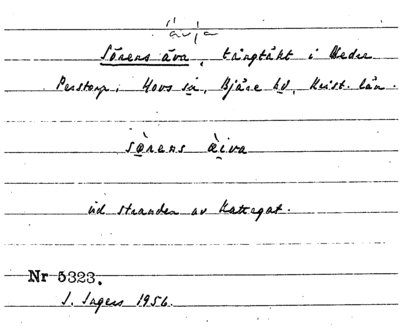 ävja
Sörens äva, tångtäkt i Neder
Perstorp, Hovs sn, Bjäre hd, Krist. län.
sörens äiva
vid stranden av Kattegat.
Nr 5323.
I. Ingers 1956.